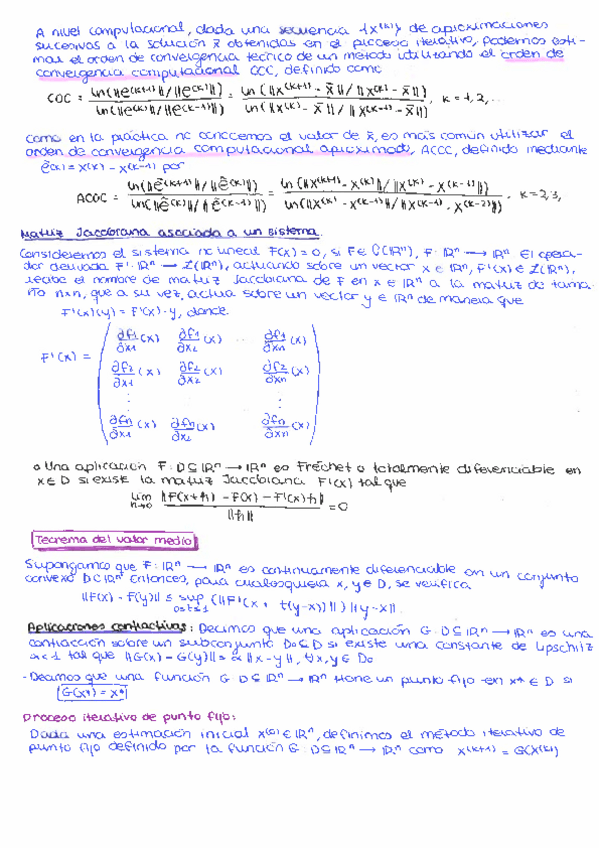 A nivel computacional, dada una secuencia {x^(k)} de aproximaciones
sucesivas a la solución x̄ obtenidas en el proceso iterativo, podemos esti-
mar el orden de convergencia teórico de un método utilizando el orden de
convergencia computacional COC, definido como
COC = ln(||e^(k+1)|| / ||e^(k)||) / ln(||e^(k)|| / ||e^(k-1)||) = ln(||x^(k+1) - x̄|| / ||x^(k) - x̄||) / ln(||x^(k) - x̄|| / ||x^(k-1) - x̄||), k = 1,2,...
Como en la práctica no conocemos el valor de x̄, es más común utilizar el
orden de convergencia computacional aproximado, ACOC, definido mediante
ẽ^(k) = x^(k) - x^(k-1) por
ACOC = ln(||ẽ^(k+1)|| / ||ẽ^(k)||) / ln(||ẽ^(k)|| / ||ẽ^(k-1)||) = ln(||x^(k+1) - x^(k)|| / ||x^(k) - x^(k-1)||) / ln(||x^(k) - x^(k-1)|| / ||x^(k-1) - x^(k-2)||), k = 2,3,
Matriz Jacobiana asociada a un sistema.
Consideremos el sistema no lineal F(x) = 0, si F ∈ C(ℝⁿ), F: ℝⁿ → ℝⁿ El opera-
dor derivada F': ℝⁿ → L(ℝⁿ), actuando sobre un vector x ∈ ℝⁿ, F'(x) ∈ L(ℝⁿ),
recibe el nombre de matriz Jacobiana de F en x ∈ ℝⁿ a la matriz de tama-
ño n×n, que a su vez, actúa sobre un vector y ∈ ℝⁿ de manera que
F'(x)(y) = F'(x)·y, donde
∂f1/∂x1 (x) ∂f1/∂x2 (x) ... ∂f1/∂xn (x)
F'(x) = ∂f2/∂x1 (x) ∂f2/∂x2 (x) ∂f2/∂xn (x)
⋮ ⋮ ⋮
∂fn/∂x1 (x) ∂fn/∂x2 (x) ∂fn/∂xn (x)
o Una aplicación F: D ⊆ ℝⁿ → ℝⁿ es Fréchet o totalmente diferenciable en
x ∈ D si existe la matriz Jacobiana F'(x) tal que
lim h→0 ||F(x+h) - F(x) - F'(x)h|| / ||h|| = 0
Teorema del valor medio
Supongamos que F: ℝⁿ → ℝⁿ es continuamente diferenciable en un conjunto
convexo D⊂ℝⁿ Entonces, para cualesquiera x, y ∈ D, se verifica
||F(x) - F(y)|| ≤ sup 0≤t≤1 (||F'(x + t(y-x))||) ||y-x||.
Aplicaciones contractivas: Decimos que una aplicación G: D ⊆ ℝⁿ → ℝⁿ es una
contracción sobre un subconjunto D₀ ⊆ D si existe una constante de Lipschitz
α < 1 tal que ||G(x) - G(y)|| ≤ α ||x - y||, ∀x, y ∈ D₀
- Decimos que una función G: D ⊆ ℝⁿ → ℝⁿ tiene un punto fijo en x* ∈ D si
G(x*) = x*
Proceso iterativo de punto fijo:
Dada una estimación inicial x^(0) ∈ ℝⁿ, definimos el método iterativo de
punto fijo definido por la función G: D ⊆ ℝⁿ → ℝⁿ como x^(k+1) = G(x^(k))